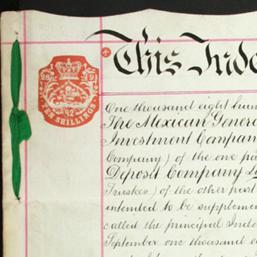 This Inde
TEN SHILLINGS
One thousand eight hun
The Mexican General
Investment Company
Company) of the one pa
Deposit Company L
Trustees) of the other part
intended to be supplemen
called the principal Inde
September one thousand e